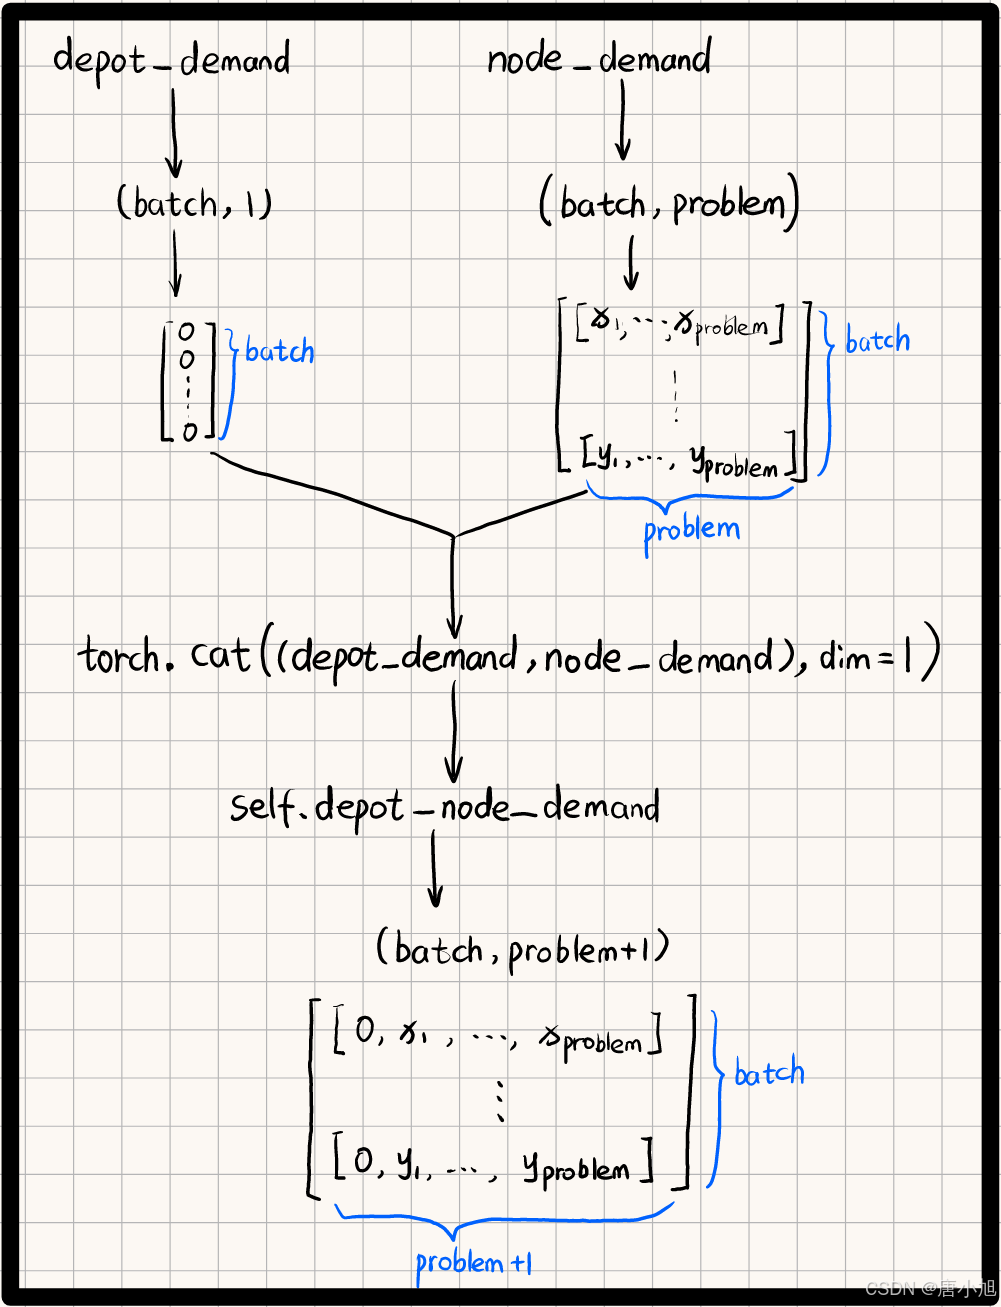 depot_demand
node_demand
(batch, 1)
(batch, problem)
[0
0
⋮
0]
batch
[[x₁, ..., x_problem]
⋮
[y₁, ..., y_problem]]
batch
problem
torch.cat((depot_demand, node_demand), dim=1)
self.depot_node_demand
(batch, problem+1)
[[0, x₁, ..., x_problem]
⋮
[0, y₁, ..., y_problem]]
batch
problem+1
CSDN @唐小旭